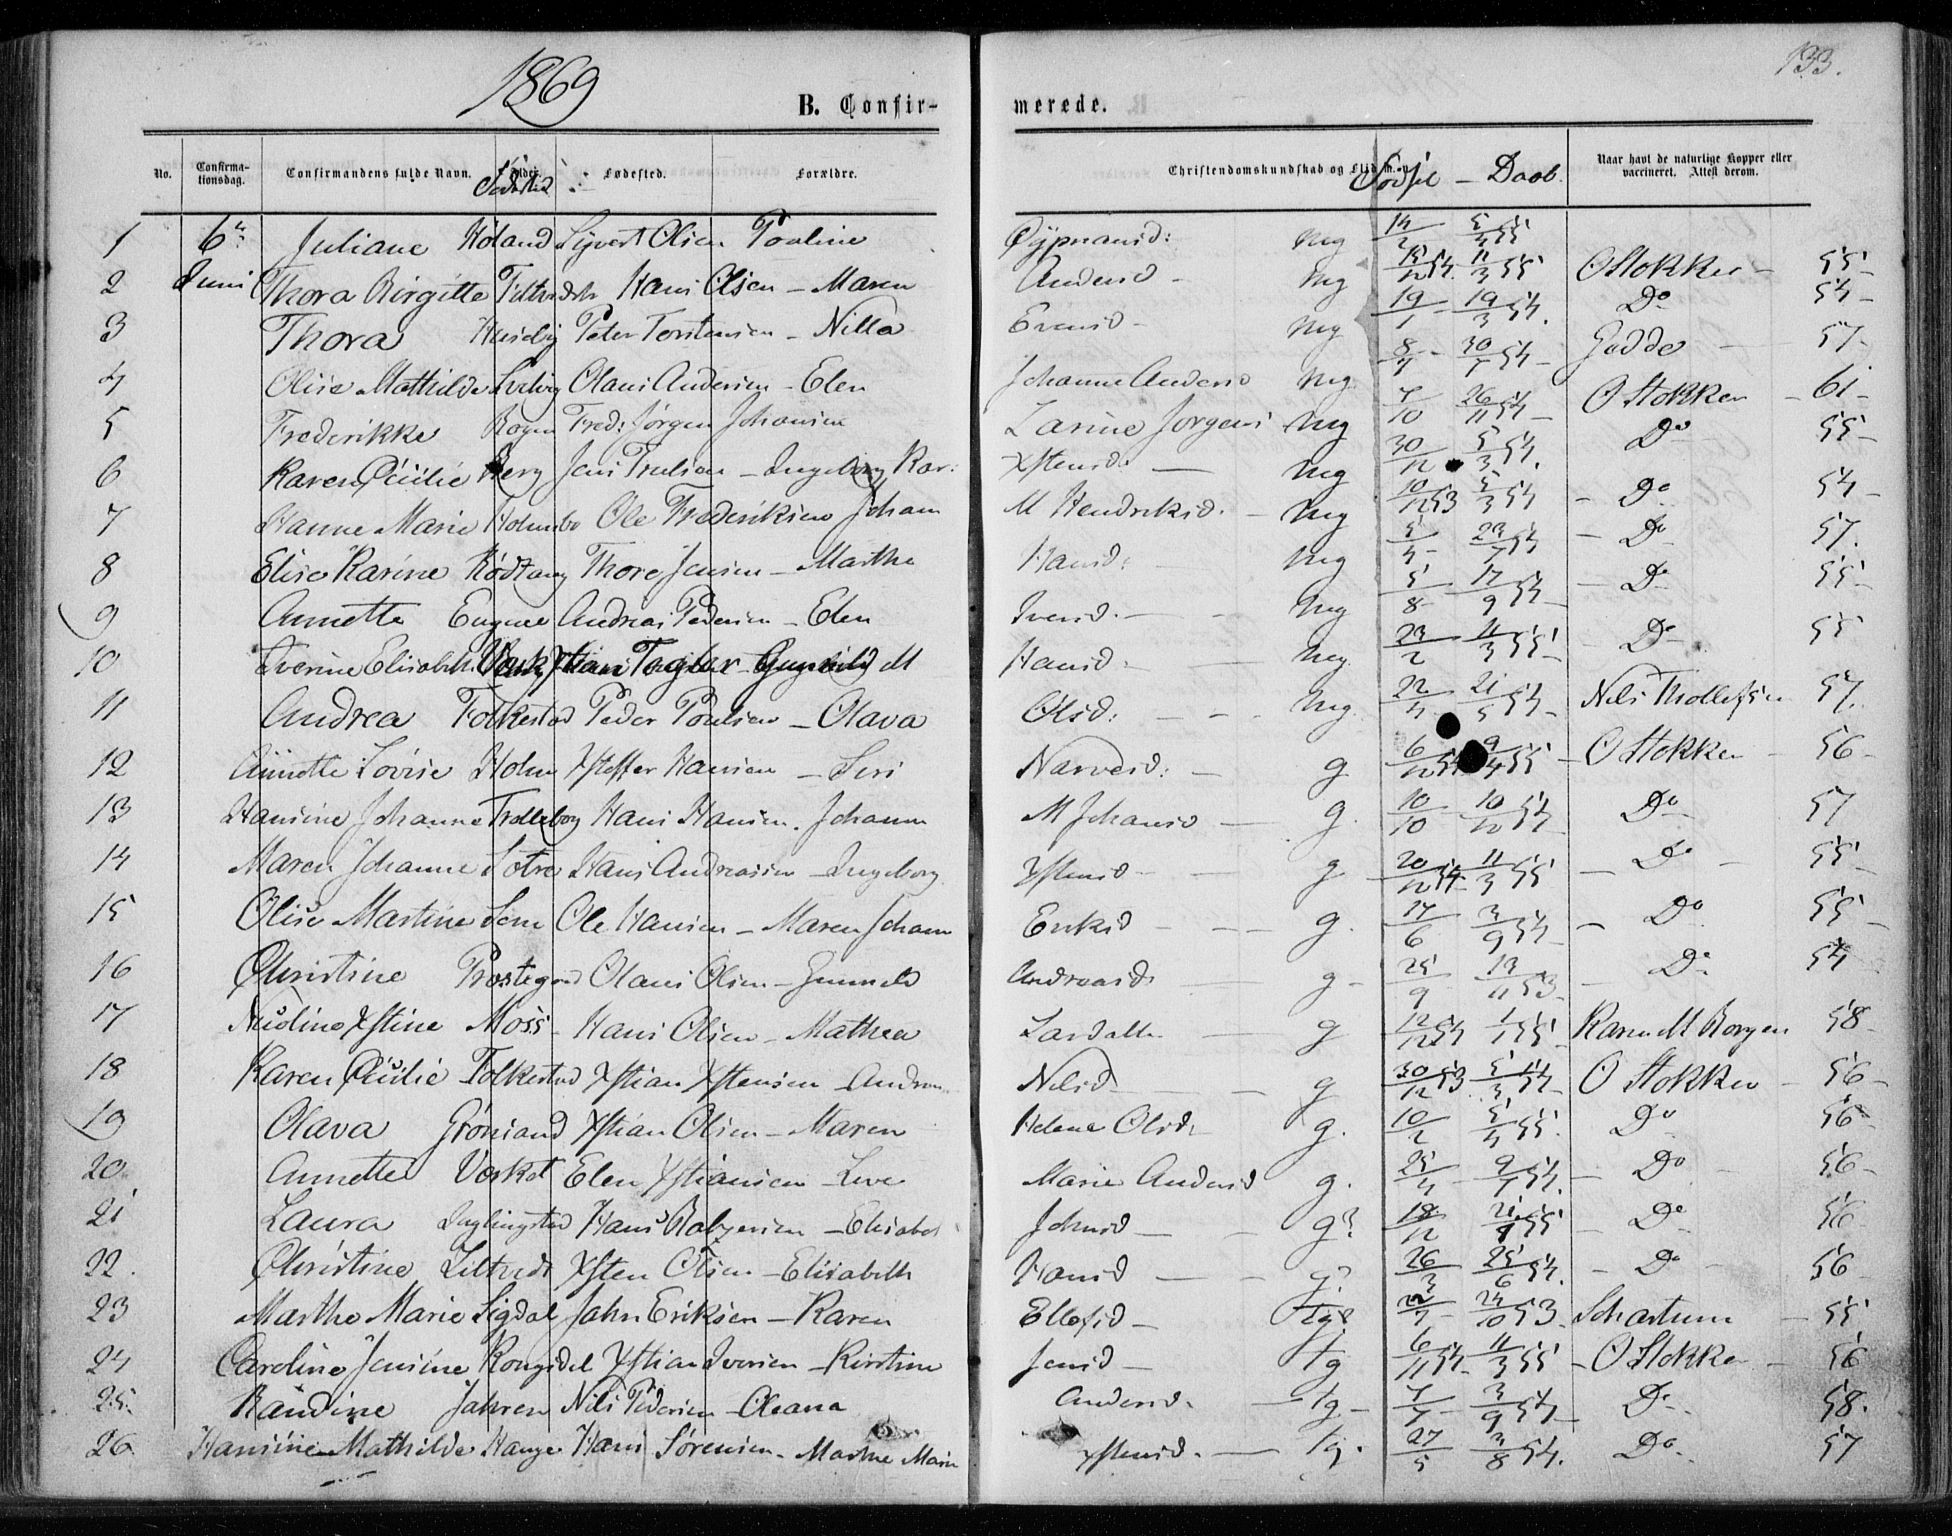 1869
133.
B. Confirmerede.
No. Confirmationsdag. Confirmandens fulde Navn. Alder. Fødested. Forældre. Christendomskundskab og Flid m.v. Fødsel – Daab. Naar havt de naturlige Kopper eller vaccineret. Attest derom.
1 6te Juliane Holand Syvert Olsen Pauline mg 5/4 55
2 Juni Thora Birgitte Hans Olsen – Maren Andersd – mg 15/12 54. 11/3 55 O Stokker – 55
3 Thora Huseby Peter Torstensen – Nilla Evensd – mg 19/1 – 19/3 54. Do 54
4 Olise Mathilde Olaus Andersen – Elen Johanne Andersd mg 8/4 – 30/7 54 – Gadde 57
5 Frederikke Fred: Jørgen Johansen Larine Jørgens mg 7/10 26/11 54 – O Stokker – 61
6 Karen Cicilie Berg Jens Trulsen – Ingeborg Kar: Xstensd. mg 30/12 5/3 54. Do 55
7 Hanne Marie Holmsbo Ole Frederiksen Johan M Hendriksd. – mg 10/12 53 5/3 54 – Do 54
8 Elise Karine Rødtang Thore Jensen – Marthe Hansd: mg 5/4 – 23/7 54 – Do 57.
9 Annette Engene Andreas Pedersen – Elen Iversd. – mg 5/8 – 17/9 54 – Do 55
10 Iverine Elisabeth Xstian Gunhild M Hansd. mg 23/2 – 11/3 55 – Do 55
11 Andrea Folkestad Peder Poulsen – Olava Olsd: mg 22/4 21/5 54 – Nils Thollefsen 57.
12 Annette Lovise Holm Xstoffer Hansen – Siri Narvesd: g 6/12 54 9/4 55 – O Stokker 56
13 Hansine Johanne Trolleborg Hans Hansen. Johanne M Johansd – g. 10/10 10/12 54 Do 57
14 Maren Johanne Sotre Hans Andreassen – Ingeborg Xstensd – g 20/12 54 – 11/3 55 – Do 55
15 Olise Martine Sem Ole Hansen – Maren Johan Eriksd – g. 17/6 3/9 54 – Do 55
16 Christine Prostegard Olaus Olsen – Gunnild Andreasd. g – 25/9 13/11 53 – Do 54
17 Nicoline Xstine Moss – Hans Olsen – Mathea g 12/12 54 1/1 55 Karen M Borgen 58
18 Karen Cicilie Folkestad Xstian Xstensen – Andrea Nilsd g 30/12 53 – 5/3 54 – O Stokker 56
19 Olava Grønsand Xstian Olsen – Maren Helene Olsd: g. 10/2 5/4 55 Do 56
20 Annette Verket Elen Xstiansen – Live Marie Andersd g. 25/4 – 9/7 54. – Do 56
21 Laura Inglingstad Hans Elisabet Johnsd – g? 18/12 55 – Do 56
22. Christine Liltvedt Xsten Olsen – Elisabeth Hansd – g? 26/3 25/6 54. – Do 56
23 Marthe Marie Sigdal John Eriksen – Karen Ellefsd – Tg? 22/7 24/10 53 Schartum 55
24 Caroline Jensine Kongsdel Xstian Iversen – Kirstine Jensd – Tg 6/11 54 11/3 55 – O Stokker 56
25. Randine Jahren Nils Pedersen – Oleana Andersd. – Tg – 7/7 – 3/9 54 – Do. 58.
26 Hansine Mathilde Hauge Hans Sørensen – Marthe Marie Xstensd. – Tg. 27/5 3/8 54. Do. 57